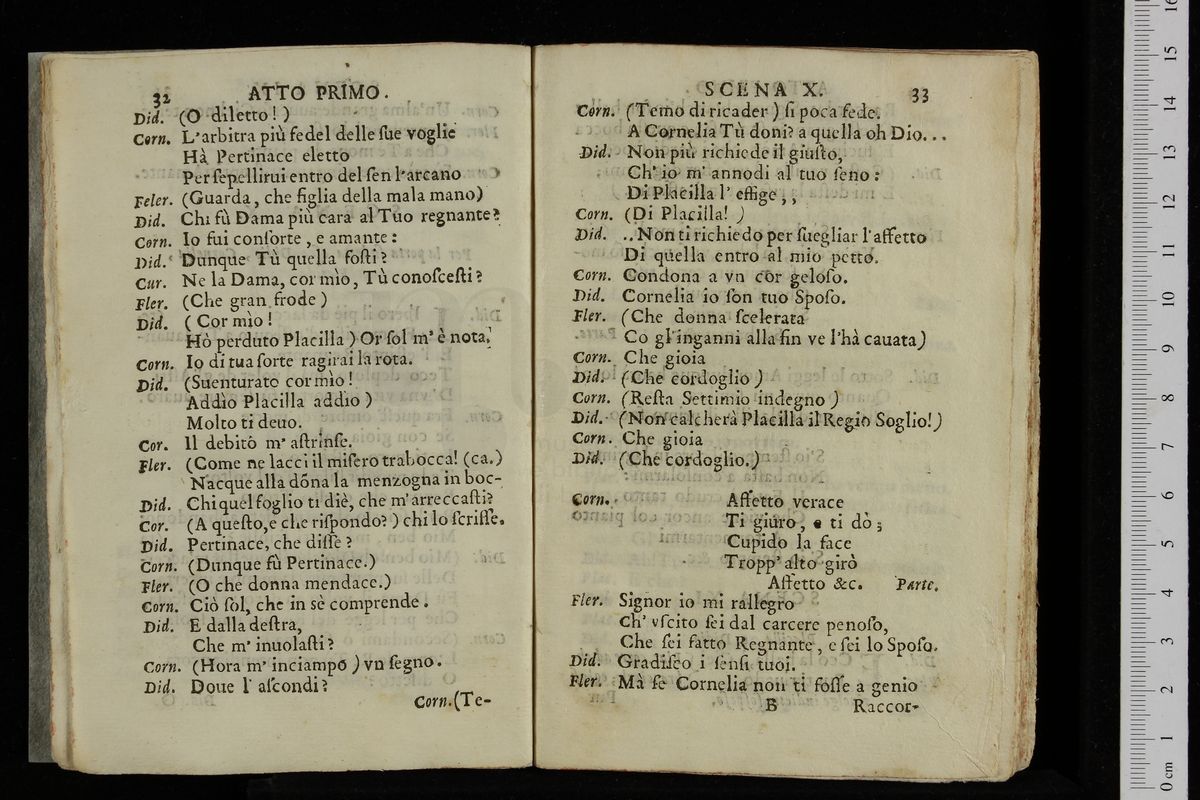 32 ATTO PRIMO.
Did. (O diletto!)
Corn. L'arbitra più fedel delle ſue voglie
Hà Pertinace eletto
Per ſepellirui entro del ſen l'arcano
Feler. (Guarda, che figlia della mala mano)
Did. Chi fù Dama più cara al Tuo regnante?
Corn. Io fui conſorte, e amante:
Did. Dunque Tù quella foſti?
Cur. Ne la Dama, cor mìo, Tù conoſceſti?
Fler. (Che gran frode)
Did. (Cor mìo!
Hò perduto Placilla) Or ſol m'è nota.
Corn. Io di tua ſorte ragirai la rota.
Did. (Suenturato cor mìo!
Addìo Placilla addìo)
Molto ti deuo.
Cor. Il debitò m'aſtrinſe.
Fler. (Come ne lacci il miſero trabocca! (ca.)
Nacque alla dōna la menzogna in boc-
Did. Chi quel foglio ti diè, che m'arreccaſti?
Cor. (A queſto, e che riſpondo?) chi lo ſcriſſe.
Did. Pertinace, che diſſe?
Corn. (Dunque fù Pertinace.)
Fler. (O che donna mendace.)
Corn. Ciò ſol, che in sè comprende.
Did. E dalla deſtra,
Che m'inuolaſti?
Corn. (Hora m'inciampō) vn ſegno.
Did. Doue l'aſcondi?
Corn. (Te-
SCENA X. 33
Corn. (Temo di ricader) ſi poca fede.
A Cornelia Tù doni? a quella oh Dio...
Did. Non più richiede il giuſto,
Ch'io m'annodi al tuo ſeno:
Di Placilla l'effige,,
Corn. (Di Placilla!)
Did. ..Non ti richiedo per ſuegliar l'affetto
Di quella entro al mio petto.
Corn. Condona a vn cor geloſo.
Did. Cornelia io ſon tuo Spoſo.
Fler. (Che donna ſcelerata
Co gl'inganni alla fin ve l'hà cauata)
Corn. Che gioia
Did. (Che cordoglio)
Corn. (Reſta Settimio indegno)
Did. (Non calcherà Placilla il Regio Soglio!)
Corn. Che gioia
Did. (Che cordoglio.)
Corn. Affetto verace
Ti giuro, e ti dò;
Cupido la face
Tropp'alto girò
Affetto &c. Parte.
Fler. Signor io mi rallegro
Ch'vſcito ſei dal carcere penoſo,
Che ſei fatto Regnante, e ſei lo Spoſo.
Did. Gradiſco i ſenſi tuoi.
Fler. Mà ſe Cornelia non ti foſſe a genio
B Raccor-